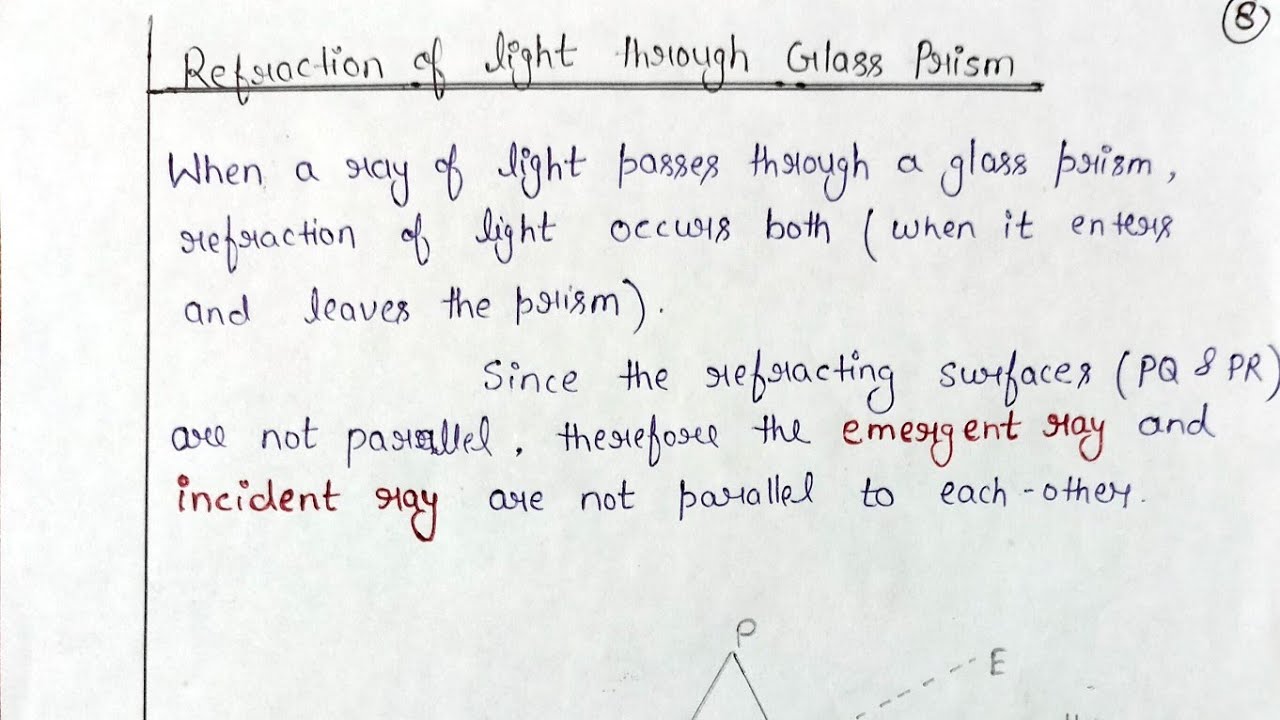 8
Refraction of light through Glass Prism
When a ray of light passes through a glass prism,
refraction of light occurs both (when it enters
and leaves the prism).
Since the refracting surfaces (PQ & PR)
are not parallel, therefore the emergent ray and
incident ray are not parallel to each-other.
P
E